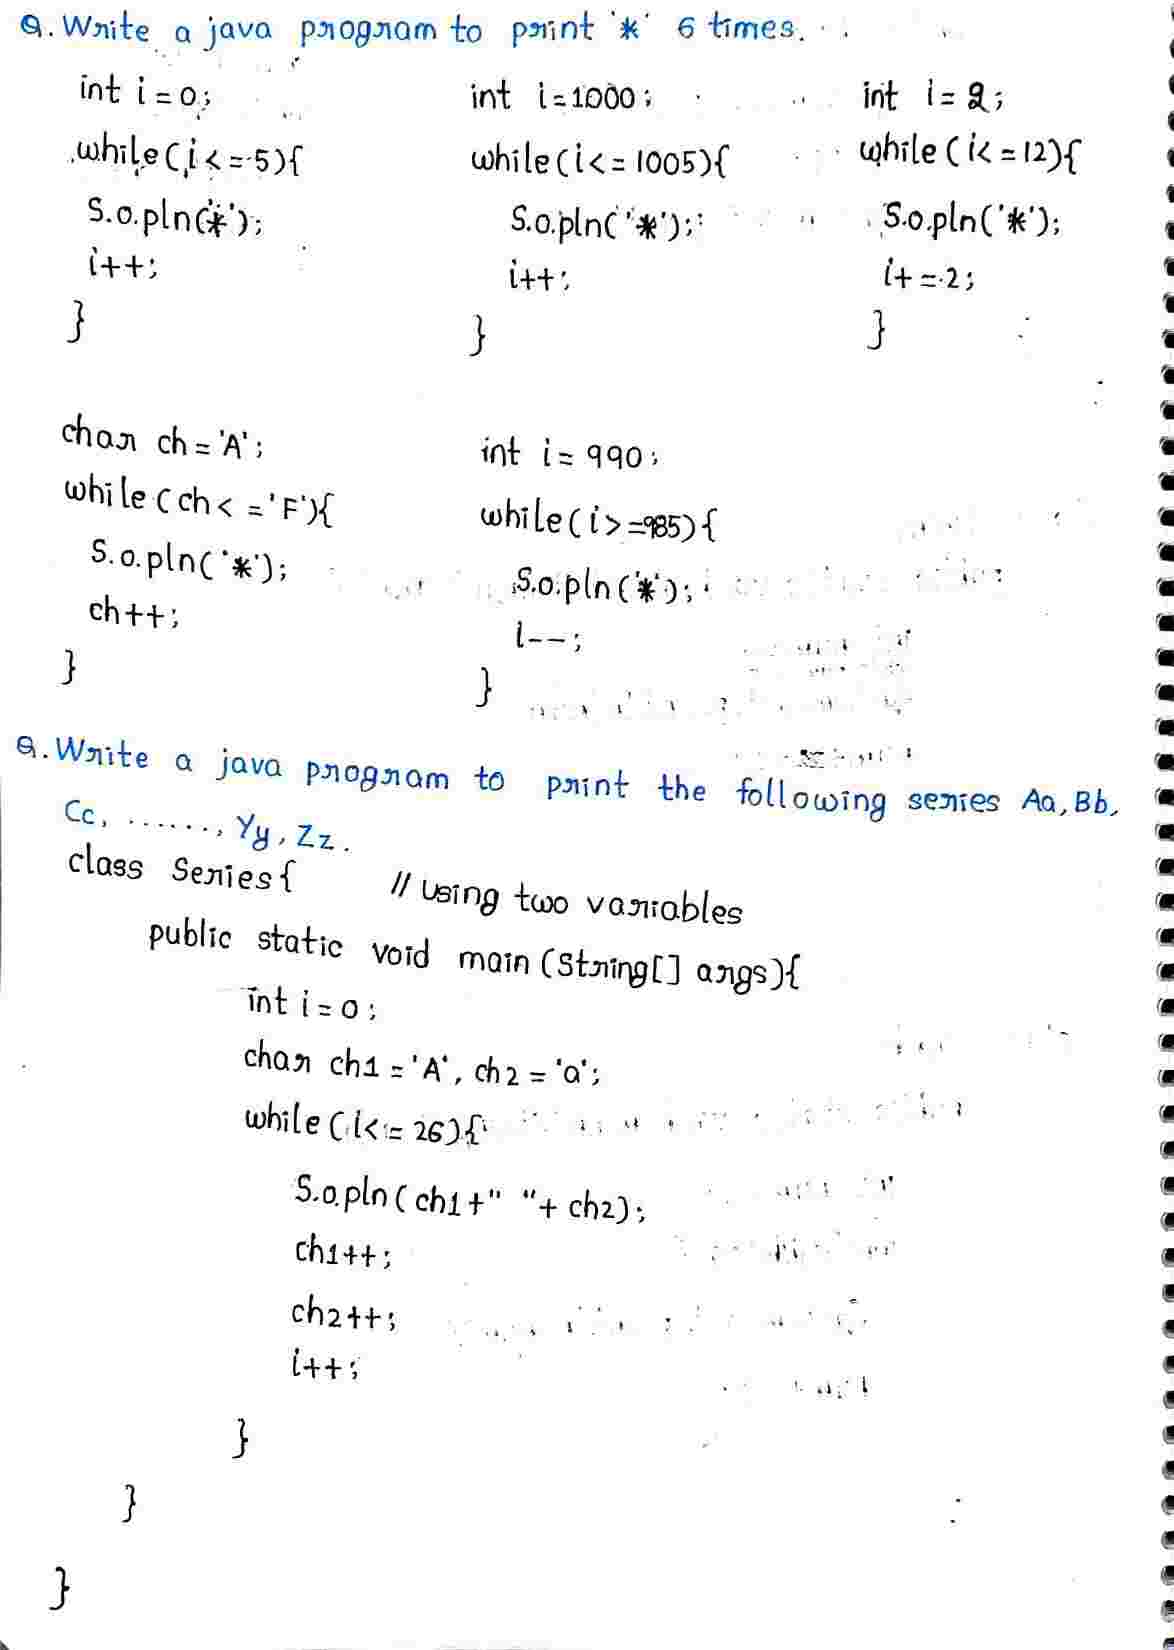 Q. Write a java program to print '*' 6 times.
int i = 0;
while(i <= 5){
S.o.pln('*');
i++;
}
int i = 1000;
while(i <= 1005){
S.o.pln('*');
i++;
}
int i = 2;
while(i <= 12){
S.o.pln('*');
i += 2;
}
char ch = 'A';
while(ch <= 'F'){
S.o.pln('*');
ch++;
}
int i = 990;
while(i >= 985){
S.o.pln('*');
i--;
}
Q. Write a java program to print the following series Aa, Bb,
Cc, ......, Yy, Zz.
class Series{ // using two variables
public static void main(String[] args){
int i = 0;
char ch1 = 'A', ch2 = 'a';
while(i <= 26){
S.o.pln(ch1 + " " + ch2);
ch1++;
ch2++;
i++;
}
}
}